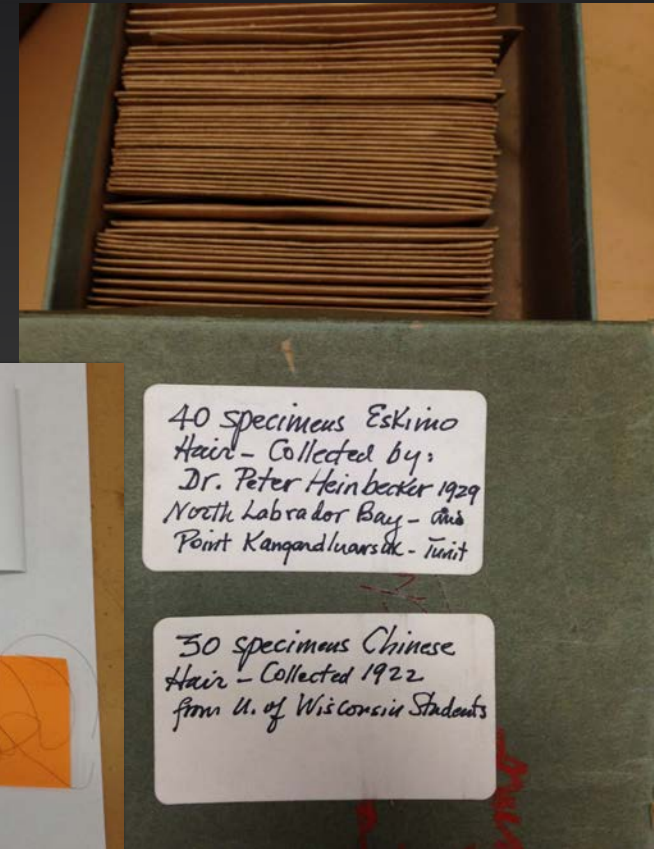 40 specimens Eskimo
Hair - Collected by:
Dr. Peter Heinbecker 1929
North Labrador Bay - and
Point Kangardluarsuk - Tunit
30 specimens Chinese
Hair - Collected 1922
from U. of Wisconsin Students